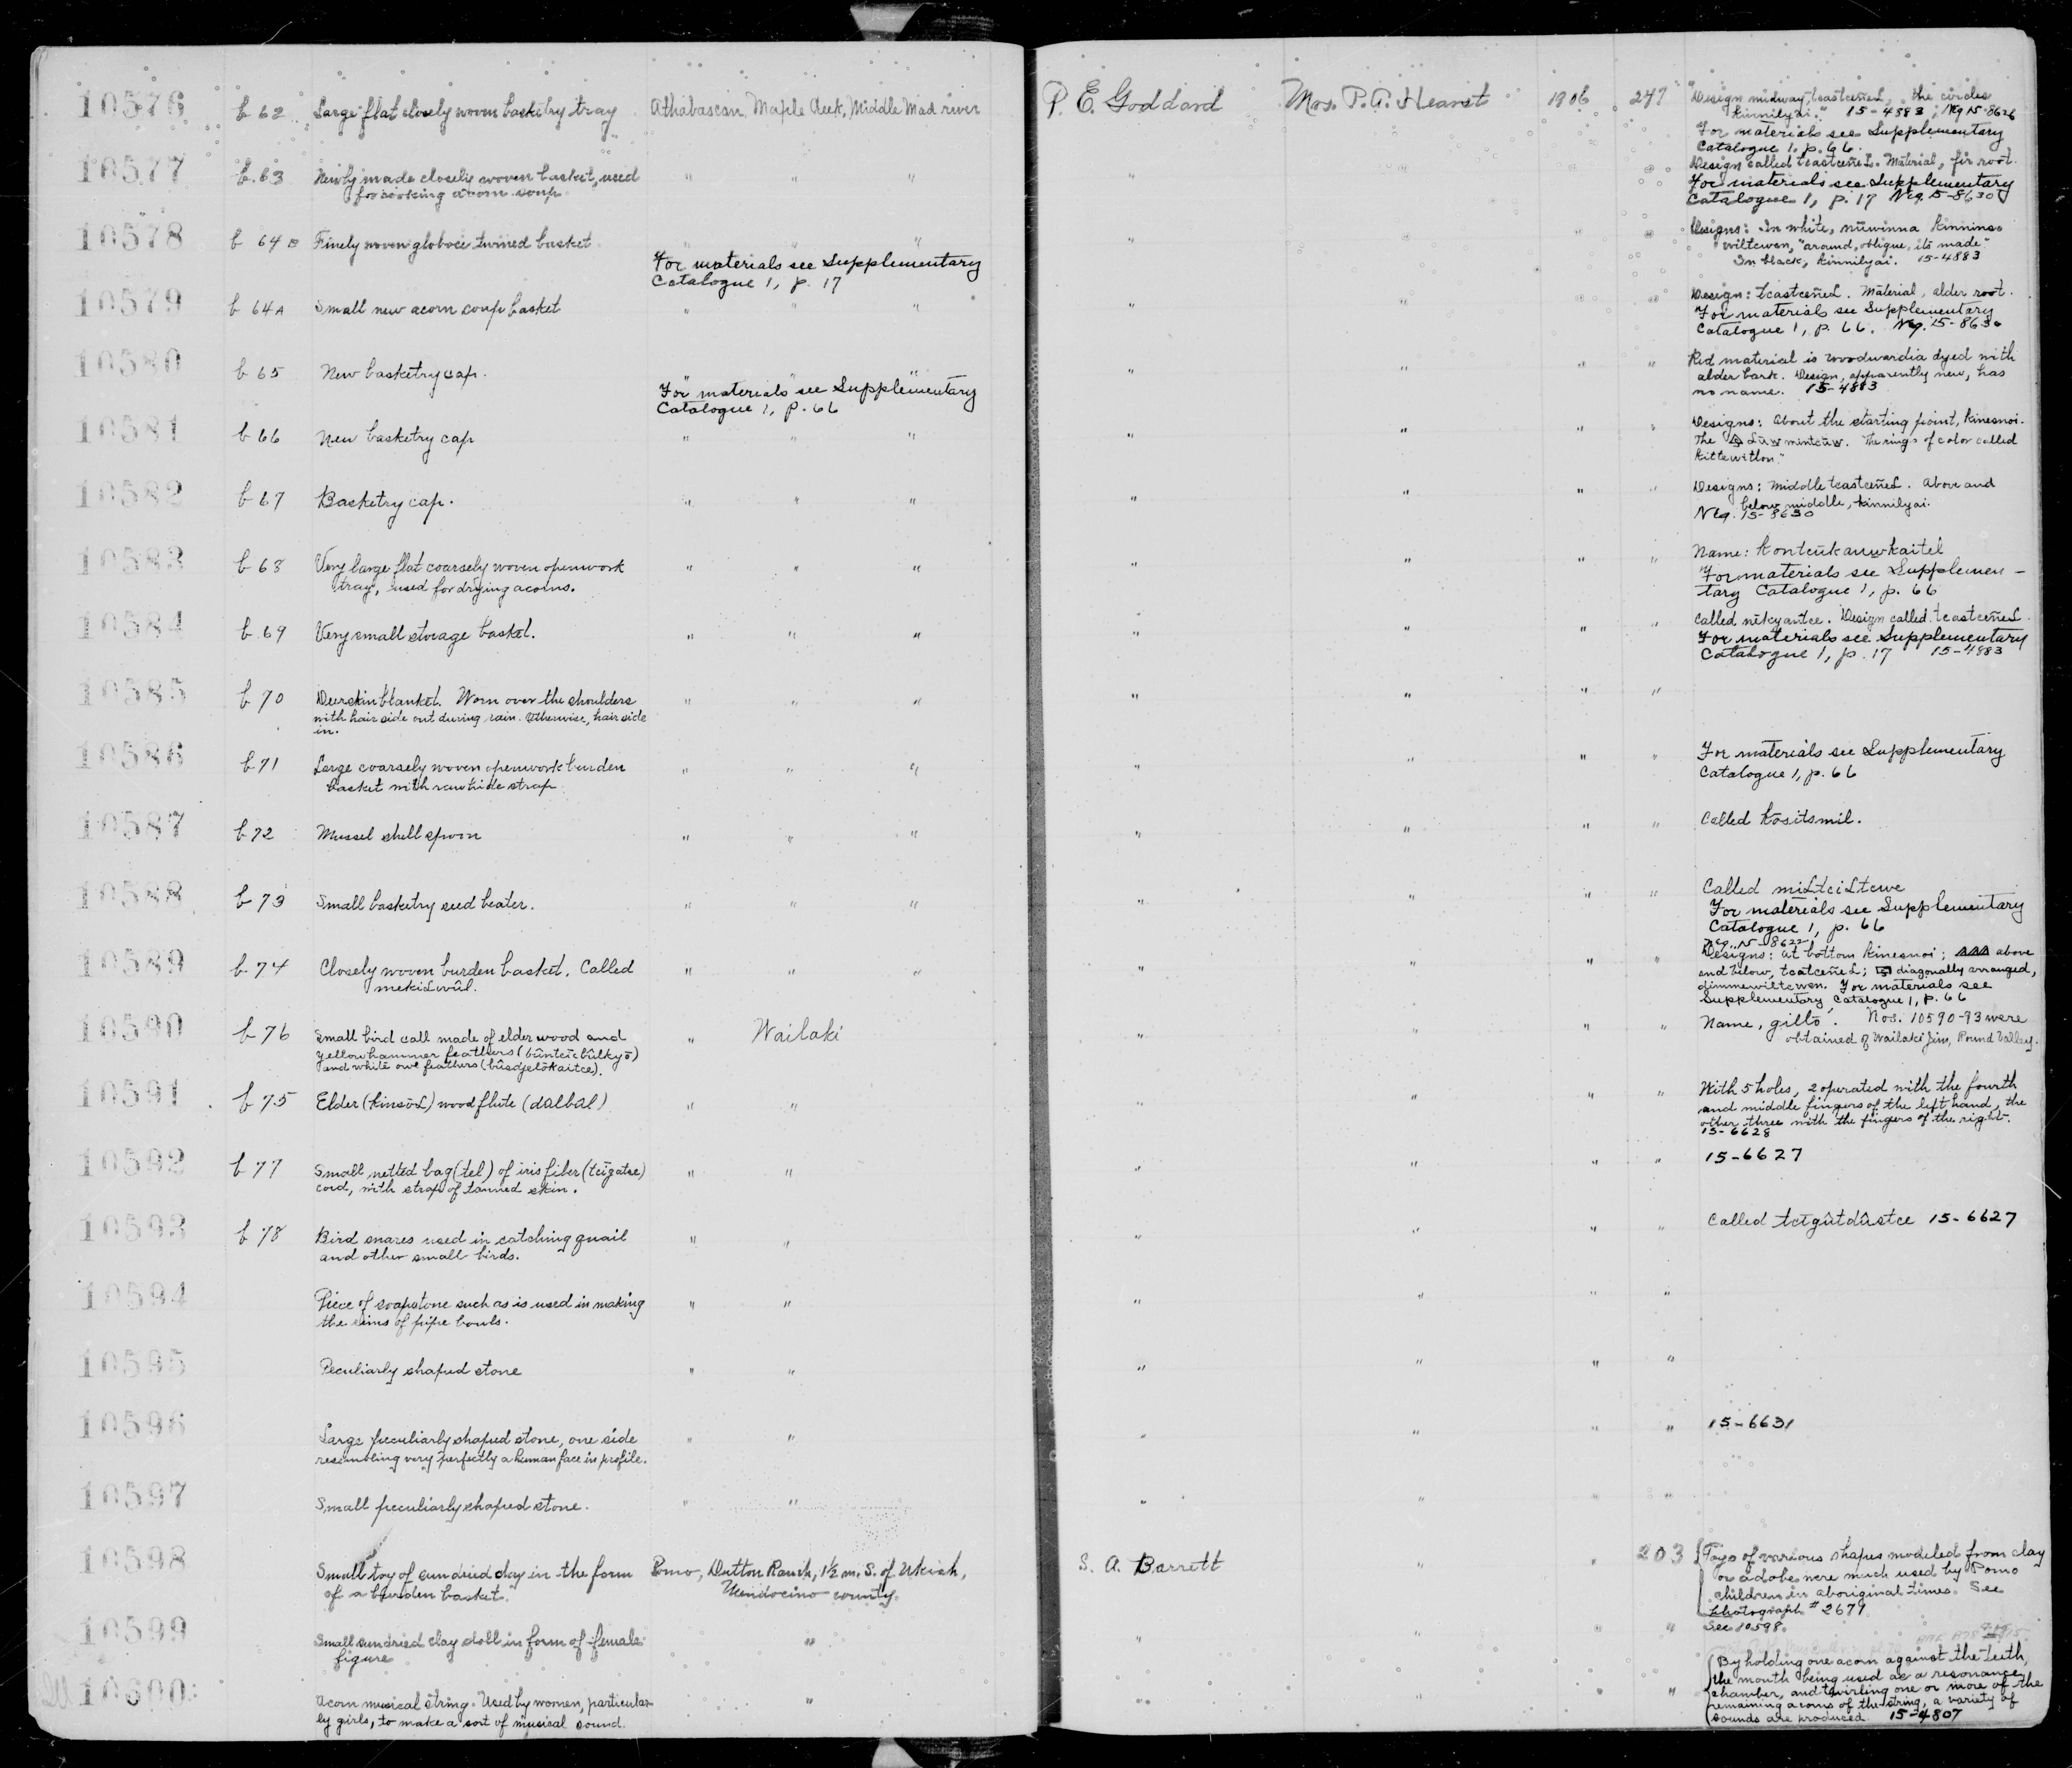 10576 b 62 Large flat closely woven basketry tray Athabascan, Maple Creek, Middle Mad river P. E. Goddard Mrs. P. A. Hearst 1906 247 "Design midway, tcastceñeL, the circles
kinnilyai." 15-4883; Neg 15-8626
For materials see Supplementary
Catalogue 1, p. 66.
10577 b 63 Newly made closely woven basket, used " " " " Design called tcastceñeL. Material, fir root.
for cooking acorn soup For materials see Supplementary
Catalogue 1, p. 17 Neg. 15-8630
10578 b 64 B Finely woven globose twined basket " " " " " " " Designs: In white, nuwinna kinninso
wiltcwen, "around, oblique, its made"
In black, kinnilyai. 15-4883
For materials see Supplementary
Catalogue 1, p. 17
10579 b 64 A Small new acorn soup basket " " " " " " " Design: tcastceñeL. Material, alder root.
For materials see Supplementary
Catalogue 1, p. 66. Neg. 15-8630
10580 b 65 New basketry cap. " " " " " " " Red material is woodwardia dyed with
alder bark. Design, apparently new, has
no name. 15-4883
For materials see Supplementary
Catalogue 1, p. 66
10581 b 66 New basketry cap " " " " " " " Designs: About the starting point, kinesnoi.
The Lūw mintcūw. The rings of color called
kittewitlon."
10582 b 67 Basketry cap. " " " " " " " Designs: Middle tcastceñeL. Above and
below middle, kinnilyai.
Neg. 15-8630
10583 b 68 Very large flat coarsely woven openwork " " " " " " " Name: kontcūkanwkaitel
tray, used for drying acorns. For materials see Supplemen-
tary Catalogue 1, p. 66
10584 b 69 Very small storage basket. " " " " " " " Called nūkyantce. Design called tcastceñeL
For materials see Supplementary
Catalogue 1, p. 17 15-4883
10585 b 70 Deerskin blanket. Worn over the shoulders " " " " " " "
with hair side out during rain. Otherwise, hair side
in.
10586 b 71 Large coarsely woven openwork burden " " " " " " " For materials see Supplementary
basket with rawhide strap Catalogue 1, p. 66
10587 b 72 Mussel shell spoon " " " " " " " Called kōsitsmil.
10588 b 73 Small basketry seed beater. " " " " " " " Called miLtciLtcwe
For materials see Supplementary
Catalogue 1, p. 66
Neg. 15-8622
10589 b 74 Closely woven burden basket. Called " " " " " " " Designs: at bottom kinesnoi; above
mekiLwūl. and below, tcatceñeL; diagonally arranged,
gimmewiltcwen. For materials see
Supplementary Catalogue 1, p. 66
10590 b 76 Small bird call made of elder wood and " Wailaki " " " " Name, gilto. Nos. 10590-93 were
yellowhammer feathers (būntcūcbūlkyō) obtained of Wailaki Jim, Round Valley.
and white owl feathers (būsdjelōkaitce).
10591 b 75 Elder (kinsōL) wood flute (dalbal) " " " " " " With 5 holes, 2 operated with the fourth
and middle fingers of the left hand, the
other three with the fingers of the right.
15-6628
10592 b 77 Small netted bag (tel) of iris fiber (tcīgatse) " " " " " " 15-6627
cord, with strap of tanned skin.
10593 b 78 Bird snares used in catching quail " " " " " " Called tcīgûtdûstce 15-6627
and other small birds.
10594 Piece of soapstone such as is used in making " " " " " "
the rims of pipe bowls.
10595 Peculiarly shaped stone " " " " " "
10596 Large peculiarly shaped stone, one side " " " " " " 15-6631
resembling very perfectly a human face in profile.
10597 Small peculiarly shaped stone. " " " " " "
10598 Small toy of sundried clay in the form Pomo, Dutton Ranch, 1½ m. S. of Ukiah, S. A. Barrett " " 203 Toys of various shapes modeled from clay
of a burden basket. Mendocino county. or adobe were much used by Pomo
children in aboriginal times. See
photograph # 2671
10599 Small sundried clay doll in form of female " " " " " See 10598.
figure
10600 Acorn musical string. Used by women, particular- " " " " " By holding one acorn against the teeth,
ly girls, to make a sort of musical sound. the mouth being used as a resonance
chamber, and twirling one or more of the
remaining acorns of the string, a variety of
sounds are produced 15-4807